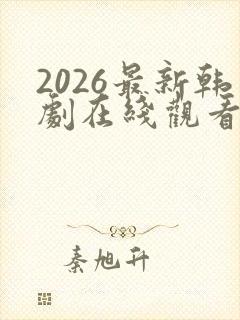 2026最新韩
劇在綫觀看
秦旭升